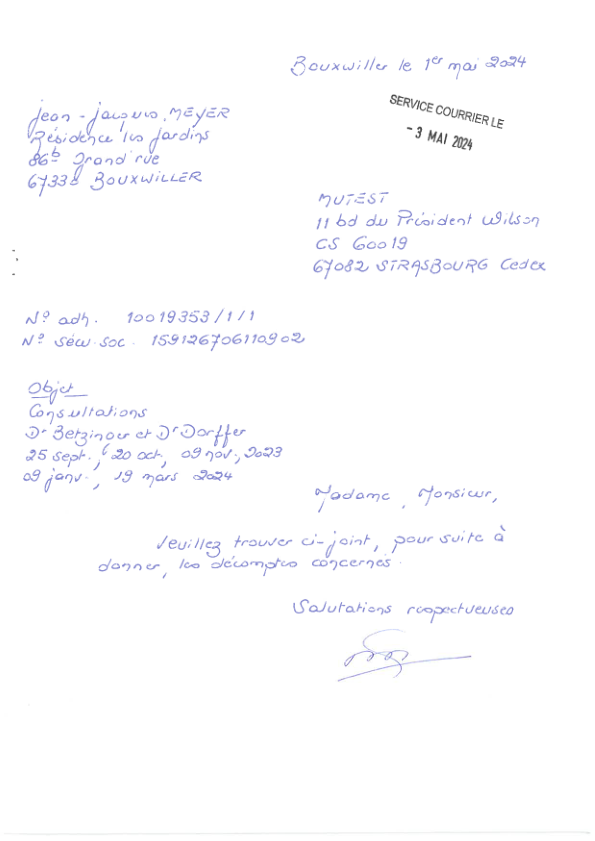 Bouxwiller le 1er mai 2024
SERVICE COURRIER LE
- 3 MAI 2024
Jean-Jacques MEYER
Résidence les Jardins
86b Grand'rue
67330 BOUXWILLER
MUTEST
11 bd du Président Wilson
CS 60019
67082 STRASBOURG Cedex
N° adh. 10019353/1/1
N° sécu. soc. 159126706110902
Objet
Consultations
Dr Betzinour et Dr Dorffer
25 sept., 20 oct, 09 nov., 2023
09 janv., 19 mars 2024
Madame, Monsieur,
Veuillez trouver ci-joint, pour suite à
donner, les décomptes concernés.
Salutations respectueuses